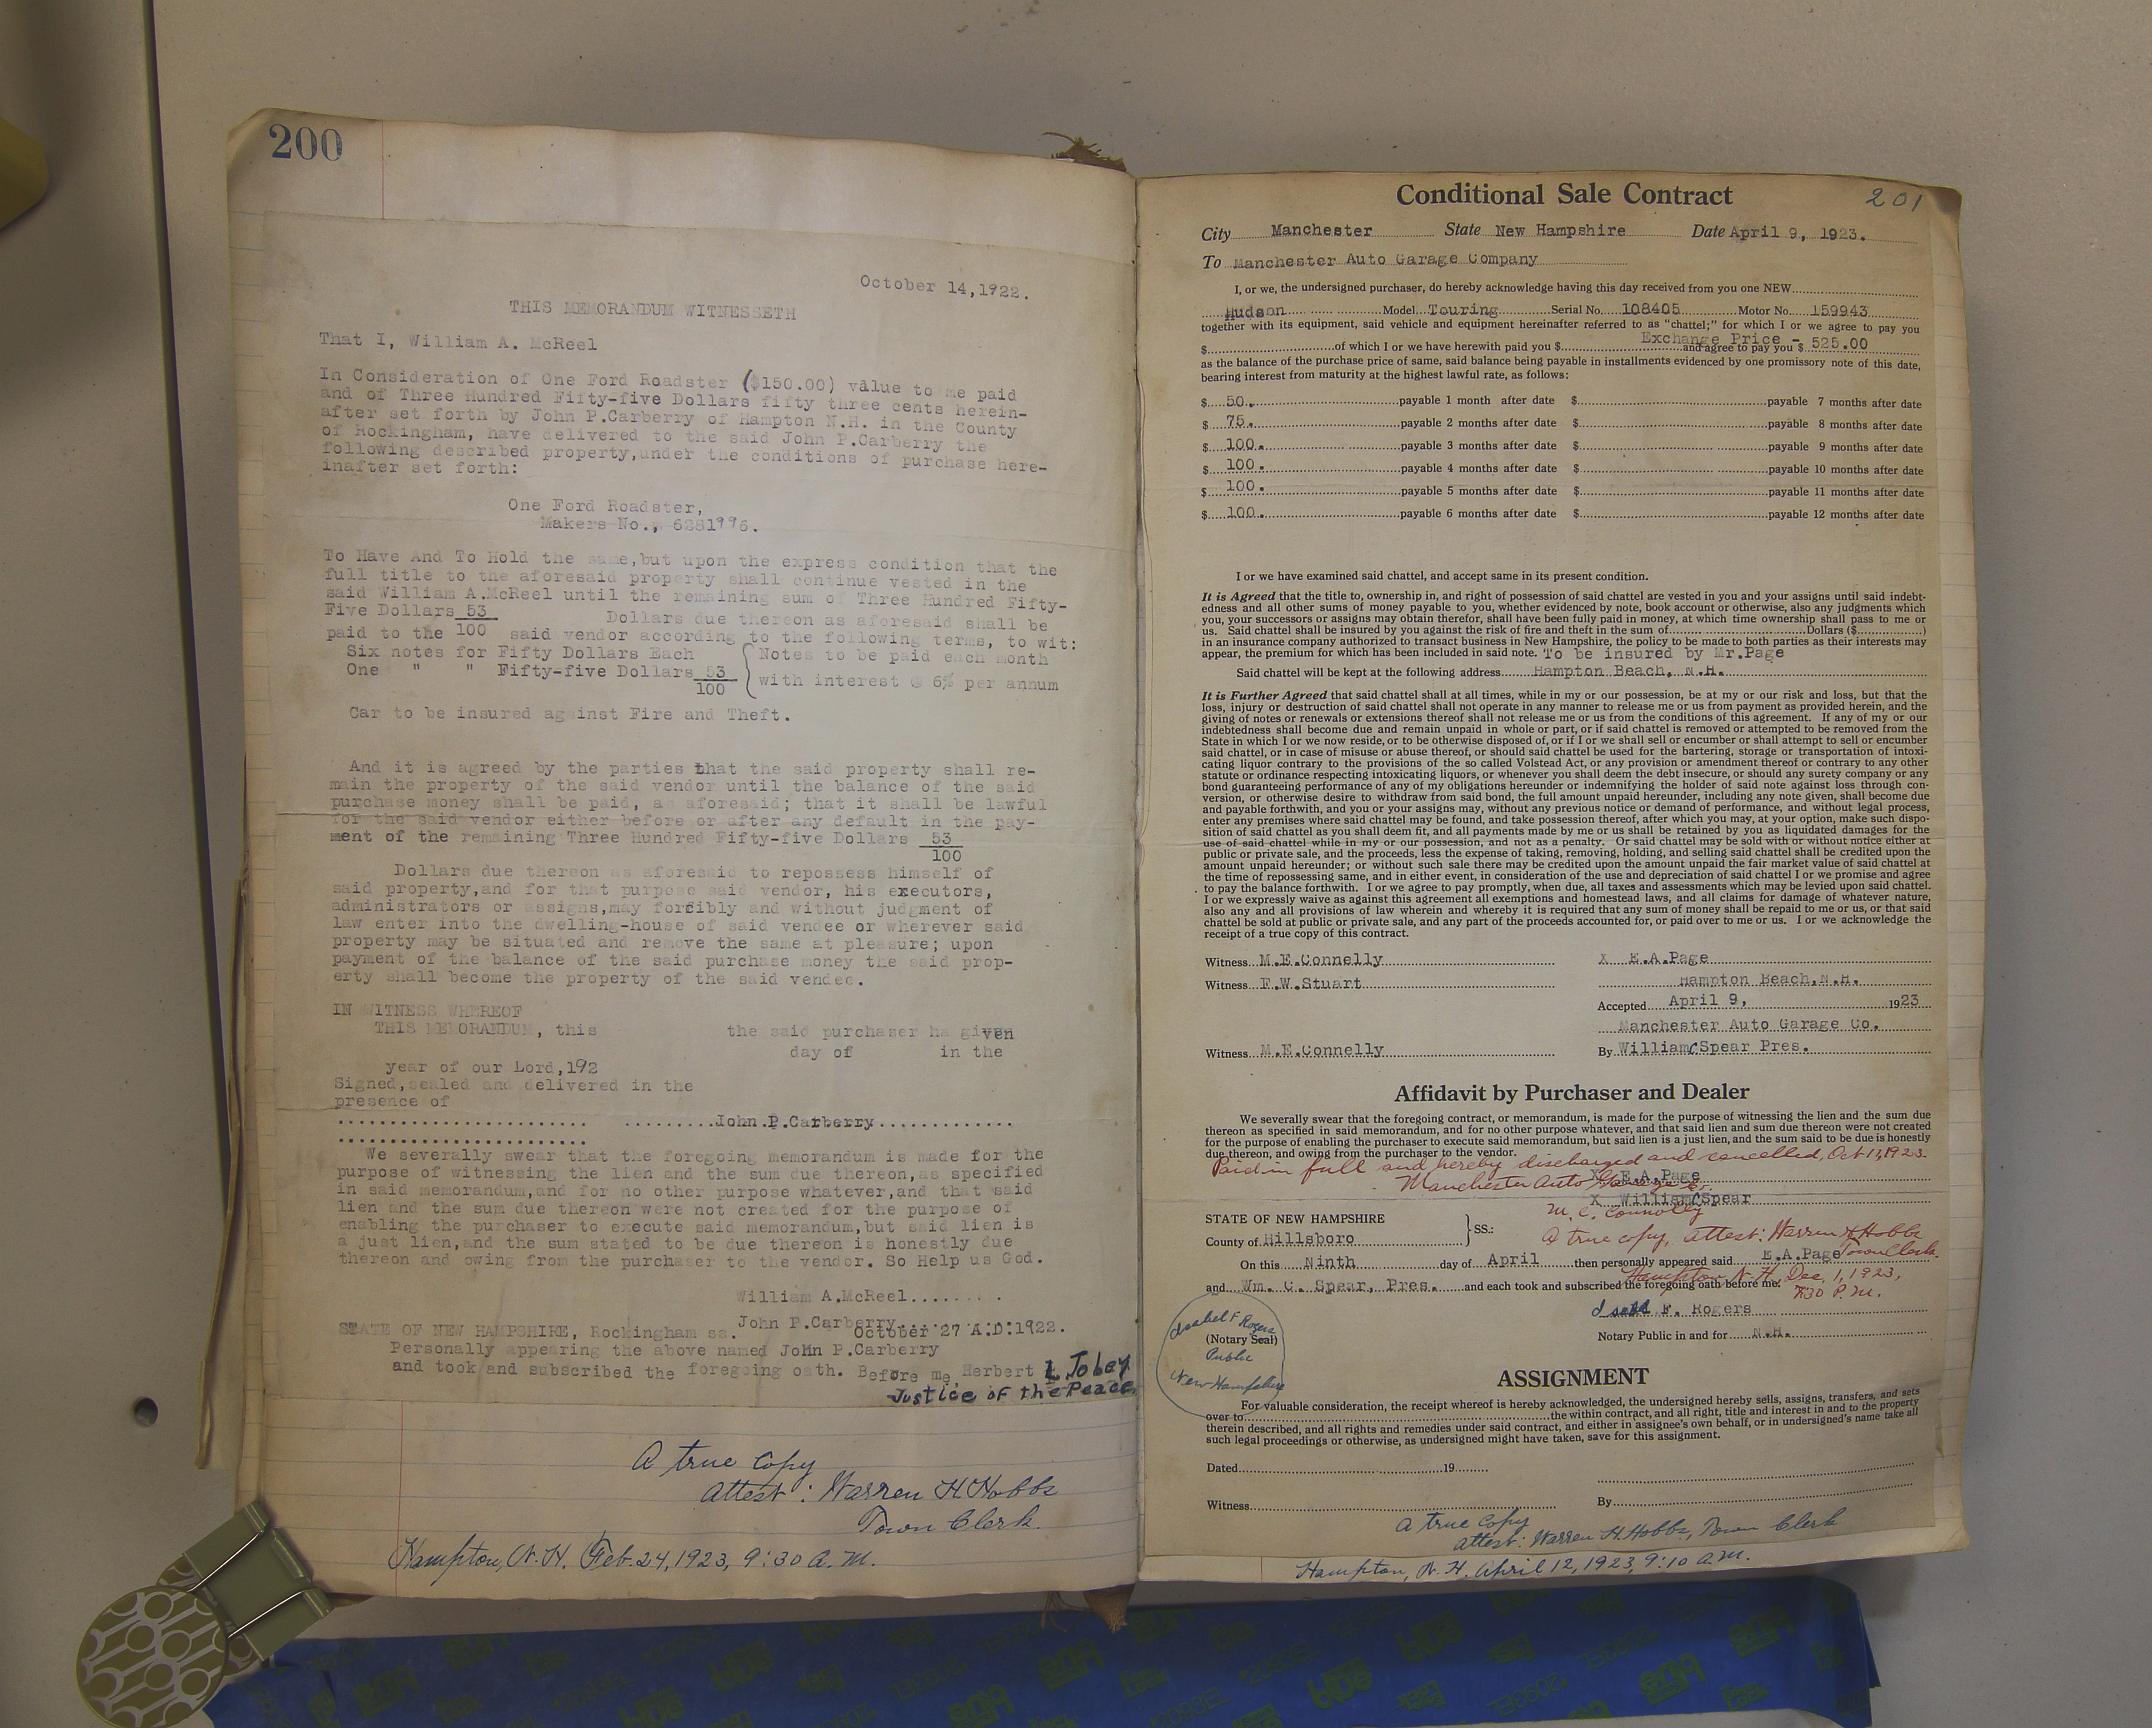 200
October 14,1922.
THIS MEMORANDUM WITNESSETH
That I, William A. McReel
In Consideration of One Ford Roadster ($150.00) value to me paid
and of Three Hundred Fifty-five Dollars fifty three cents herein-
after set forth by John P.Carberry of Hampton N.H. in the County
of Rockingham, have delivered to the said John P.Carberry the
following described property,under the conditions of purchase here-
inafter set forth:
One Ford Roadster,
Makers No., 6281996.
To Have And To Hold the same,but upon the express condition that the
full title to the aforesaid property shall continue vested in the
said William A.McReel until the remaining sum of Three Hundred Fifty-
Five Dollars 53
100 Dollars due thereon as aforesaid shall be
paid to the said vendor according to the following terms, to wit:
Six notes for Fifty Dollars Each { Notes to be paid each month
One " " Fifty-five Dollars 53/100 with interest @ 6% per annum
Car to be insured against Fire and Theft.
And it is agreed by the parties that the said property shall re-
main the property of the said vendor until the balance of the said
purchase money shall be paid, as aforesaid; that it shall be lawful
for the said vendor either before or after any default in the pay-
ment of the remaining Three Hundred Fifty-five Dollars 53
100
Dollars due thereon as aforesaid to repossess himself of
said property,and for that purpose said vendor, his executors,
administrators or assigns,may forcibly and without judgment of
law enter into the dwelling-house of said vendee or wherever said
property may be situated and remove the same at pleasure; upon
payment of the balance of the said purchase money the said prop-
erty shall become the property of the said vendee.
IN WITNESS WHEREOF
THIS MEMORANDUM, this the said purchaser ha given
day of in the
year of our Lord,192
Signed,sealed and delivered in the
presence of
John.P.Carberry
We severally swear that the foregoing memorandum is made for the
purpose of witnessing the lien and the sum due thereon,as specified
in said memorandum,and for no other purpose whatever,and that said
lien and the sum due thereon were not created for the purpose of
enabling the purchaser to execute said memorandum,but said lien is
a just lien,and the sum stated to be due thereon is honestly due
thereon and owing from the purchaser to the vendor. So Help us God.
William A.McReel........
John P.Carberry........
STATE OF NEW HAMPSHIRE, Rockingham ss. October 27 A.D.1922.
Personally appearing the above named John P.Carberry
and took and subscribed the foregoing oath. Before me, Herbert L Tobey
Justice of the Peace
A true Copy
attest: Warren H. Hobbs
Town Clerk.
Hampton, N.H. Feb. 24, 1923, 9:30 A.M.
Conditional Sale Contract 201
City Manchester State New Hampshire Date April 9, 1923.
To Manchester Auto Garage Company
I, or we, the undersigned purchaser, do hereby acknowledge having this day received from you one NEW
Hudson Model Touring Serial No. 108405 Motor No. 159943
together with its equipment, said vehicle and equipment hereinafter referred to as "chattel;" for which I or we agree to pay you
Exchange Price -
$ of which I or we have herewith paid you $ and agree to pay you $ 525.00
as the balance of the purchase price of same, said balance being payable in installments evidenced by one promissory note of this date,
bearing interest from maturity at the highest lawful rate, as follows:
$ 50. payable 1 month after date $ payable 7 months after date
$ 75. payable 2 months after date $ payable 8 months after date
$ 100. payable 3 months after date $ payable 9 months after date
$ 100. payable 4 months after date $ payable 10 months after date
$ 100. payable 5 months after date $ payable 11 months after date
$ 100. payable 6 months after date $ payable 12 months after date
I or we have examined said chattel, and accept same in its present condition.
It is Agreed that the title to, ownership in, and right of possession of said chattel are vested in you and your assigns until said indebt-
edness and all other sums of money payable to you, whether evidenced by note, book account or otherwise, also any judgments which
you, your successors or assigns may obtain therefor, shall have been fully paid in money, at which time ownership shall pass to me or
us. Said chattel shall be insured by you against the risk of fire and theft in the sum of Dollars ($ )
in an insurance company authorized to transact business in New Hampshire, the policy to be made to both parties as their interests may
appear, the premium for which has been included in said note. To be insured by Mr.Page
Said chattel will be kept at the following address Hampton Beach, N.H.
It is Further Agreed that said chattel shall at all times, while in my or our possession, be at my or our risk and loss, but that the
loss, injury or destruction of said chattel shall not operate in any manner to release me or us from payment as provided herein, and the
giving of notes or renewals or extensions thereof shall not release me or us from the conditions of this agreement. If any of my or our
indebtedness shall become due and remain unpaid in whole or part, or if said chattel is removed or attempted to be removed from the
State in which I or we now reside, or to be otherwise disposed of, or if I or we shall sell or encumber or shall attempt to sell or encumber
said chattel, or in case of misuse or abuse thereof, or should said chattel be used for the bartering, storage or transportation of intoxi-
cating liquor contrary to the provisions of the so called Volstead Act, or any provision or amendment thereof or contrary to any other
statute or ordinance respecting intoxicating liquors, or whenever you shall deem the debt insecure, or should any surety company or any
bond guaranteeing performance of any of my obligations hereunder or indemnifying the holder of said note against loss through con-
version, or otherwise desire to withdraw from said bond, the full amount unpaid hereunder, including any note given, shall become due
and payable forthwith, and you or your assigns may, without any previous notice or demand of performance, and without legal process,
enter any premises where said chattel may be found, and take possession thereof, after which you may, at your option, make such dispo-
sition of said chattel as you shall deem fit, and all payments made by me or us shall be retained by you as liquidated damages for the
use of said chattel while in my or our possession, and not as a penalty. Or said chattel may be sold with or without notice either at
public or private sale, and the proceeds, less the expense of taking, removing, holding, and selling said chattel shall be credited upon the
amount unpaid hereunder; or without such sale there may be credited upon the amount unpaid the fair market value of said chattel at
the time of repossessing same, and in either event, in consideration of the use and depreciation of said chattel I or we promise and agree
to pay the balance forthwith. I or we agree to pay promptly, when due, all taxes and assessments which may be levied upon said chattel.
I or we expressly waive as against this agreement all exemptions and homestead laws, and all claims for damage of whatever nature,
also any and all provisions of law wherein and whereby it is required that any sum of money shall be repaid to me or us, or that said
chattel be sold at public or private sale, and any part of the proceeds accounted for, or paid over to me or us. I or we acknowledge the
receipt of a true copy of this contract.
Witness M.E.Connelly X E.A.Page
Witness F.W.Stuart Hampton Beach,N.H.
Accepted April 9, 1923
Manchester Auto Garage Co.
Witness M.E.Connelly By William C Spear Pres.
Affidavit by Purchaser and Dealer
We severally swear that the foregoing contract, or memorandum, is made for the purpose of witnessing the lien and the sum due
thereon as specified in said memorandum, and for no other purpose whatever, and that said lien and sum due thereon were not created
for the purpose of enabling the purchaser to execute said memorandum, but said lien is a just lien, and the sum said to be due is honestly
due thereon, and owing from the purchaser to the vendor.
Paid in full and hereby discharged and cancelled, Oct 17, 1923.
X E.A.Page
Manchester Auto Garage Co.
X William C Spear
M. E. Connolly
STATE OF NEW HAMPSHIRE
County of Hillsboro } SS.:
A true copy, attest: Warren H Hobbs
Town Clerk.
On this Ninth day of April then personally appeared said E.A.Page
Hampton N.H. Dec. 1, 1923,
7:30 P.M.
and Wm. C. Spear, Pres. and each took and subscribed the foregoing oath before me.
Isabel F. Rogers
Notary Public in and for N.H.
Isabel F Rogers
(Notary Seal)
Public
New Hampshire
ASSIGNMENT
For valuable consideration, the receipt whereof is hereby acknowledged, the undersigned hereby sells, assigns, transfers, and sets
over to the within contract, and all right, title and interest in and to the property
therein described, and all rights and remedies under said contract, and either in assignee's own behalf, or in undersigned's name take all
such legal proceedings or otherwise, as undersigned might have taken, save for this assignment.
Dated 19
Witness By
A true Copy
attest: Warren H. Hobbs, Town Clerk
Hampton, N.H. April 12, 1923, 9:10 A.M.